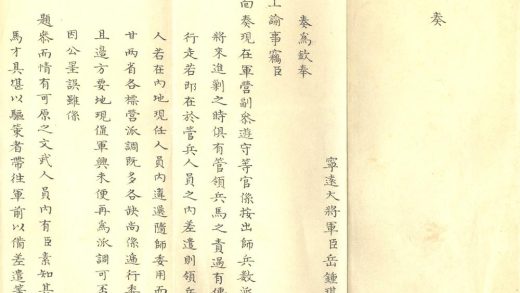 奏
寧遠大將軍臣岳鍾琪
奏為欽奉
上諭事竊臣
面奏現在軍營副參遊守等官係按出師兵數派
將來進剿之時俱有管領兵馬之責遇有傳
行走若即在於管兵人員之內差遣則領兵
人若在內地現任人員內遴選隨師委用而
甘兩省各標營派調既多各缺尚係遞行委
且邊方要地現值軍興未便再為派調可否
因公罣誤雖係
題參而情有可原之文武人員內有臣素知其
馬才具堪以驅策者帶往軍前以備差遣等